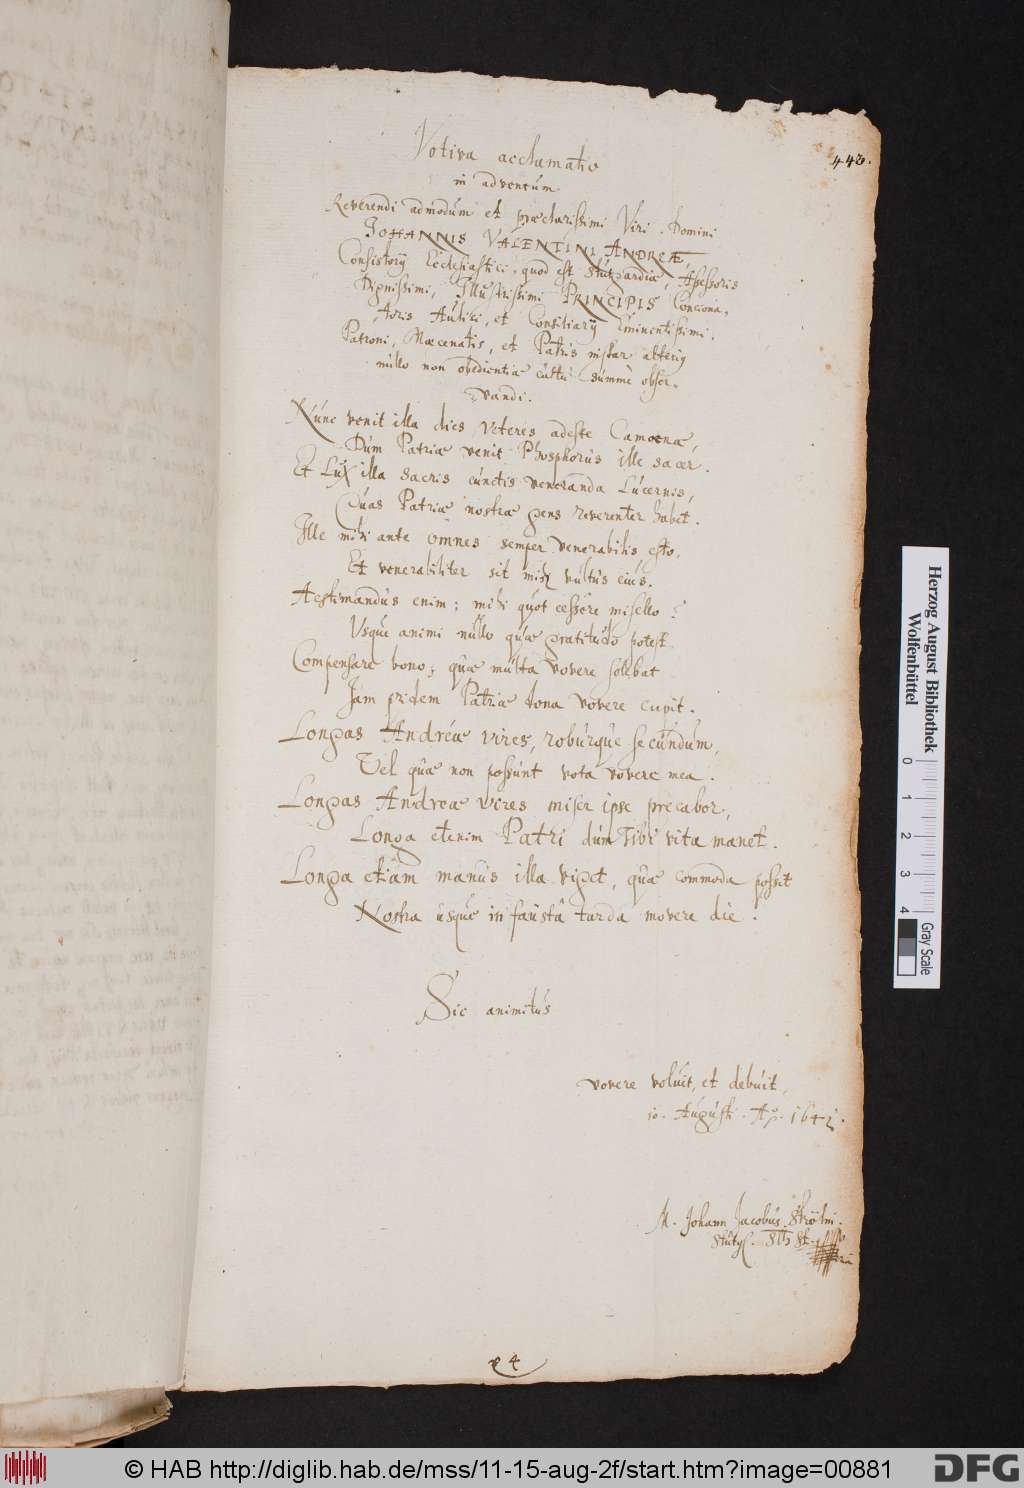 442.
Votiva acclamatio
in adventúm
Reverendi admodúm et præclarissimi Viri Domini
JOHANNIS VALENTINI ANDREÆ,
Consistorij Ecclesiastici, quod est Stútgardiæ, Assessoris
Dignissimi, Illustrissimi PRINCIPIS Conciona-
toris Aúlici, et Consiliarij Eminentissimi,
Patroni, Mæcenatis, et Patris instar alterius
núllo non obedientiæ cúltú súmmè obser-
vandi.
Núnc venit illa dies veteres adeste Camoenæ,
Dúm Patriæ venit Phosphorús ille sacer.
Et Lúx illa sacris cúnctis veneranda Lúcernis,
Qúas Patriæ nostræ gens reverenter habet.
Ille mihi ante omnes semper venerabilis esto,
Et venerabiliter sit mihi vúltús eiús.
Aestimandús enim; mihi qúot cessêre misello?
Vsqúe animi núllo qúæ gratitúdo potest
Compensare bono; qúæ múlta vovere solebat
Jam pridem Patriæ bona vovere cupit.
Longas Andréæ vires, robúrqúe secúndúm,
Vel qúæ non possúnt vota vovere mea.
Longas Andreæ vires miser ipse precabor,
Longa etenim Patri dúm Tibi vita manet.
Longa etiam manús illa viget, qúæ commoda possit
Nostra úsqúe infaústâ tarda movere die.
Sic animitús
vovere volúit, et debúit,
10. Aúgústi. Ao. 1642.
M. Johann Jacobús
Stútg.
e 4
Herzog August Bibliothek
Wolfenbüttel
0 1 2 3 4
Gray Scale
© HAB http://diglib.hab.de/mss/11-15-aug-2f/start.htm?image=00881
DFG